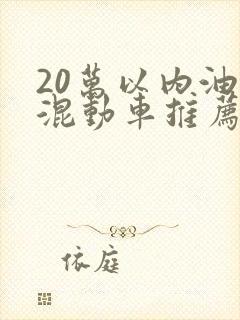 20萬以內油
混動車推薦
依庭